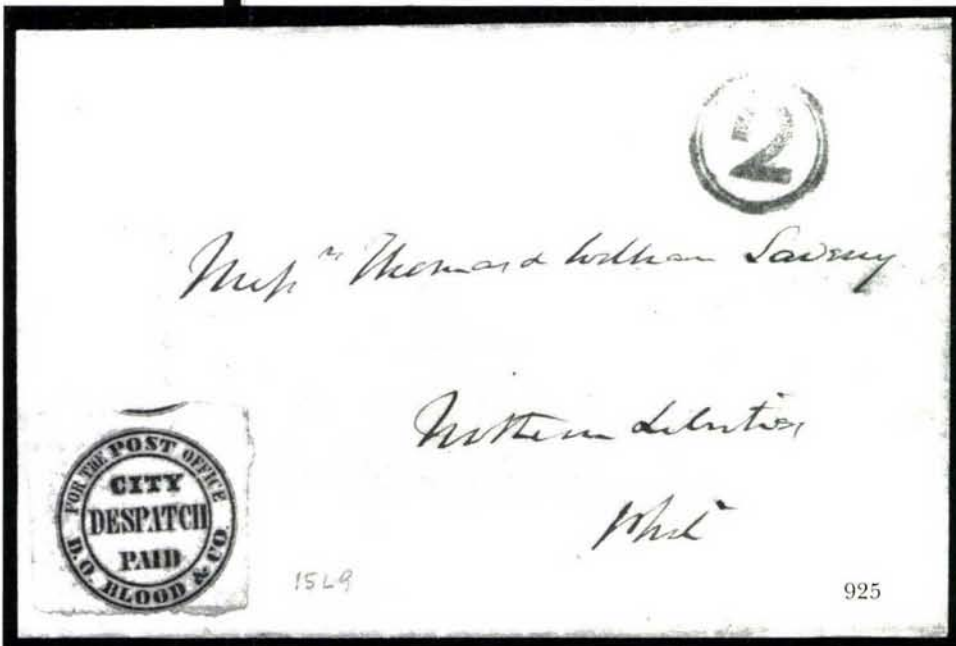 2
Messrs Thomas & William Savery
Northern Liberties
Phila
FOR THE POST OFFICE
CITY
DESPATCH
PAID
D.O. BLOOD & CO.
15L9
925